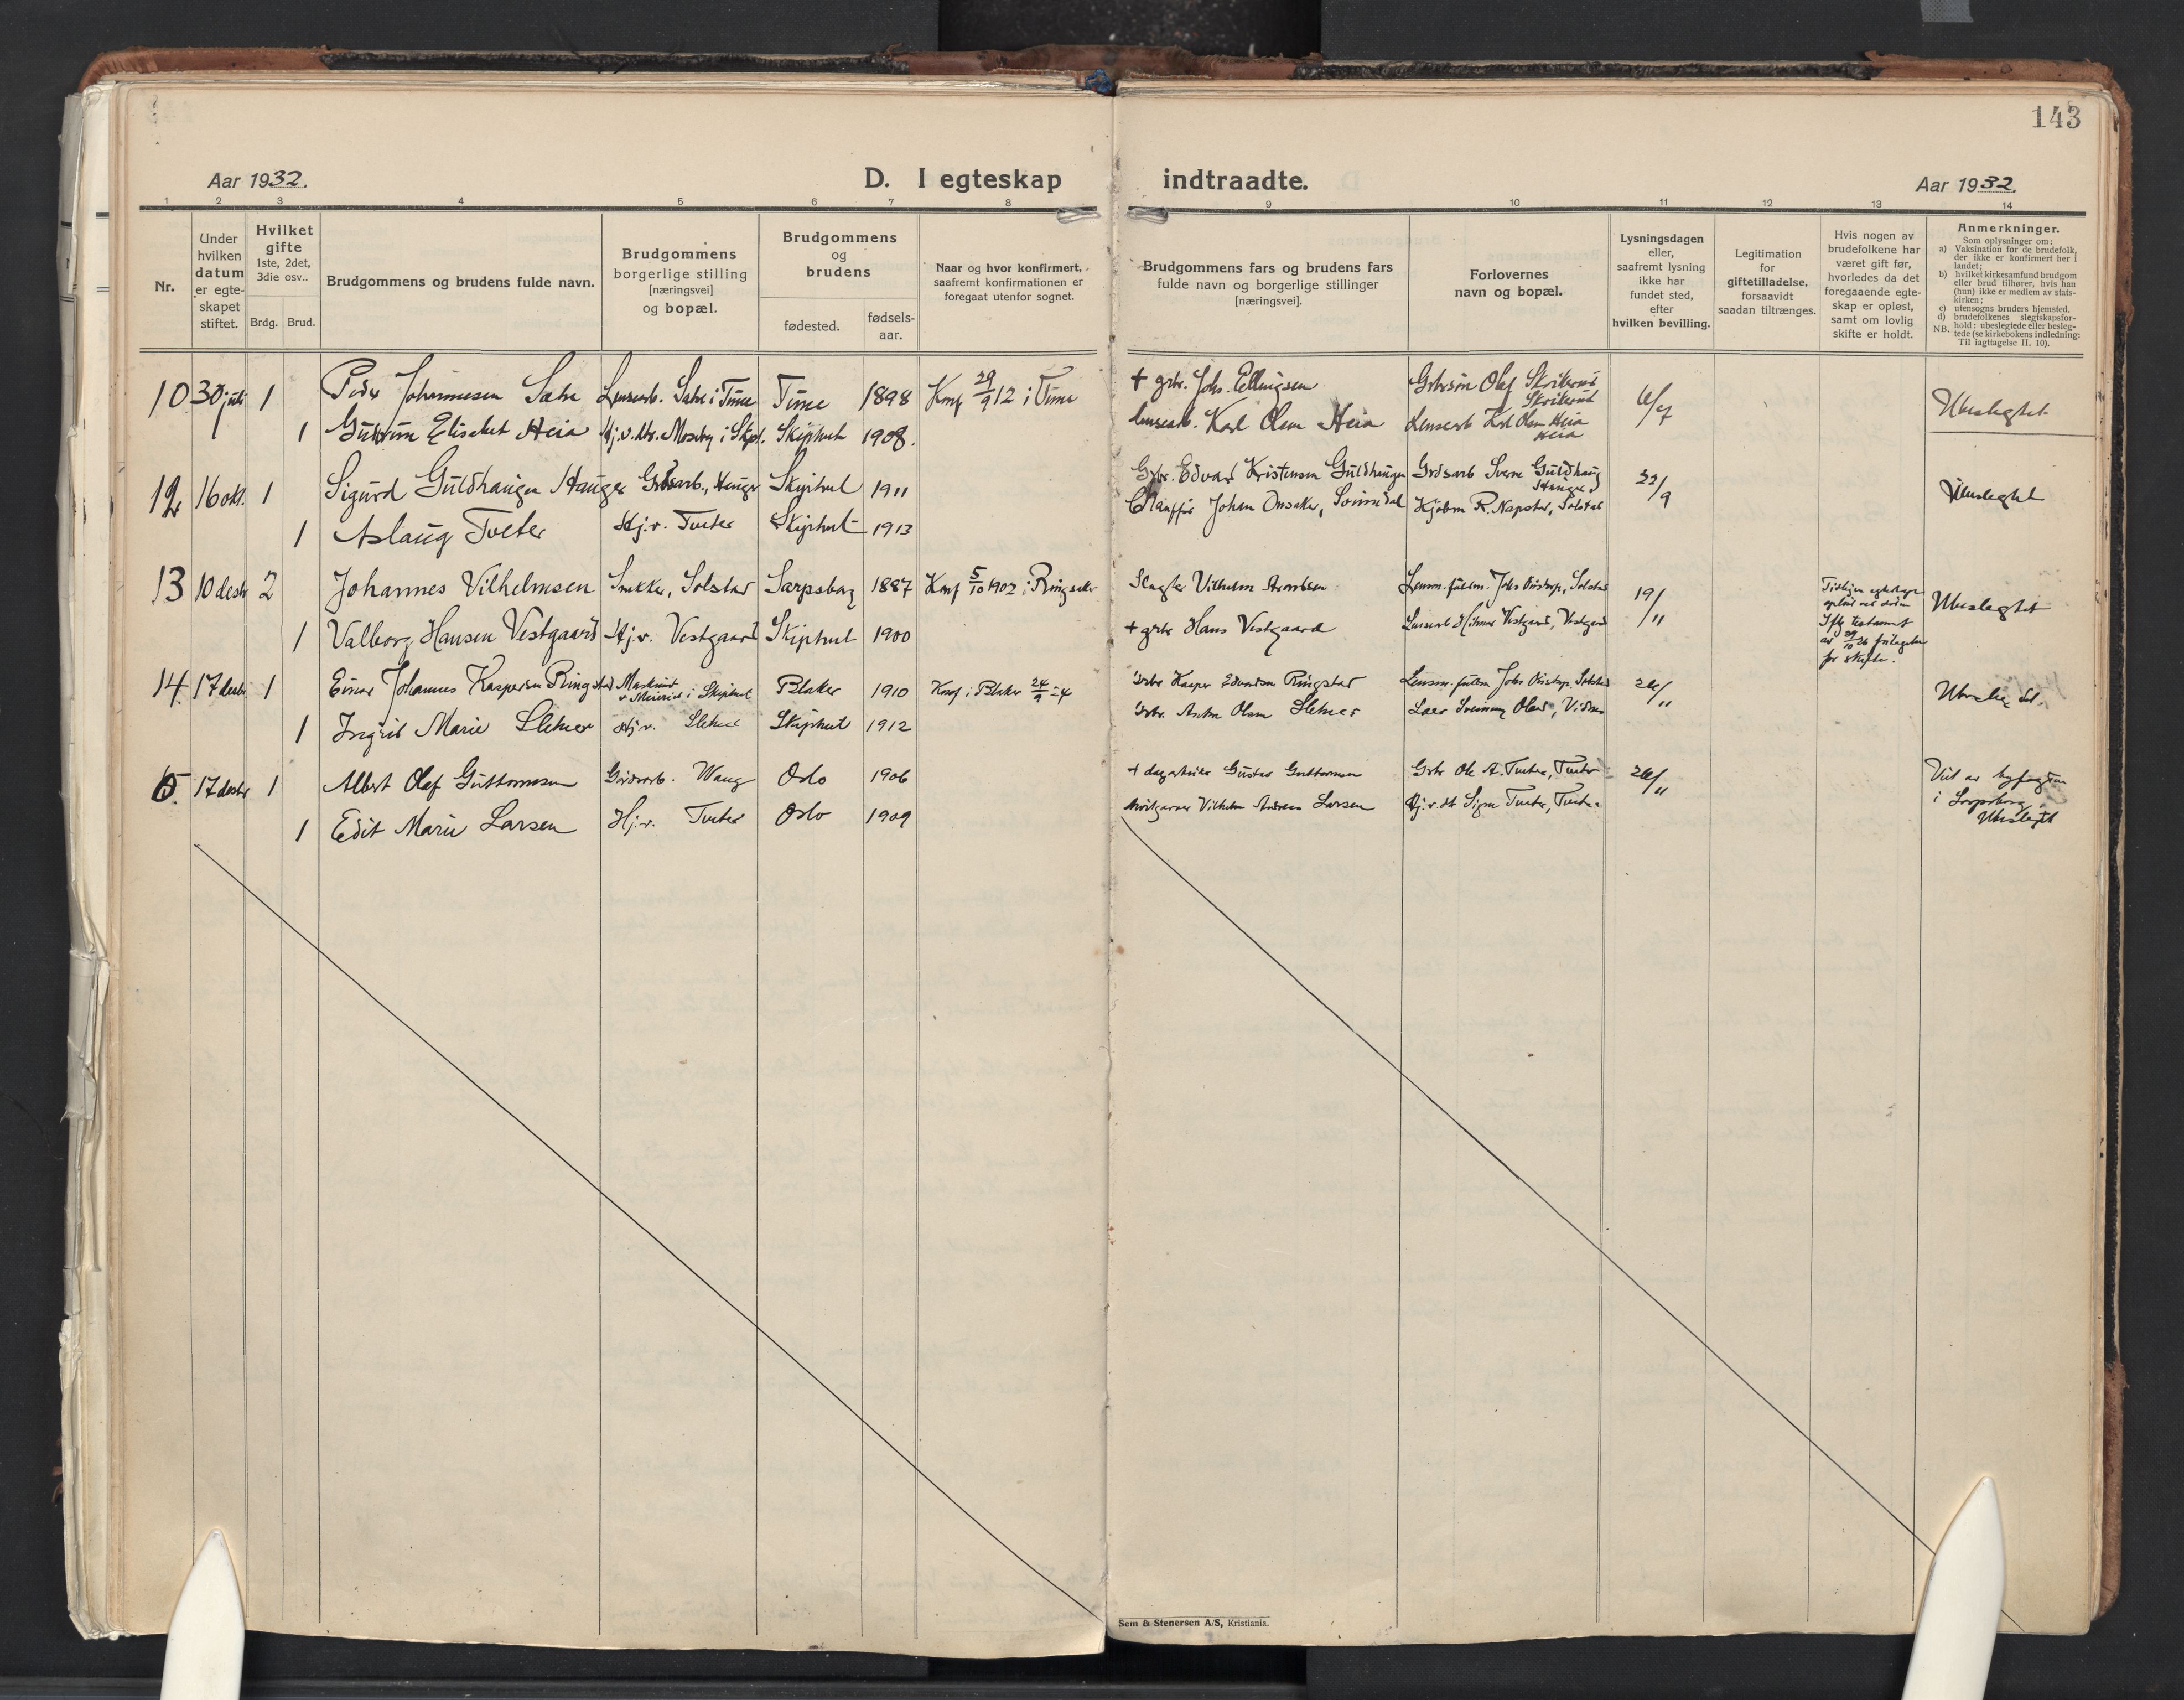 143
Aar 1932.
D. I egteskap indtraadte.
Aar 1932.
1 2 3 4 5 6 7 8 9 10 11 12 13 14
Nr.
Under
hvilken
datum
er egte-
skapet
stiftet.
Hvilket
gifte
1ste, 2det,
3die osv..
Brdg. Brud.
Brudgommens og brudens fulde navn.
Brudgommens
borgerlige stilling
[næringsvei]
og bopæl.
Brudgommens
og
brudens
fødested.
fødsels-
aar.
Naar og hvor konfirmert,
saafremt konfirmationen er
foregaat utenfor sognet.
Brudgommens fars og brudens fars
fulde navn og borgerlige stillinger
[næringsvei].
Forlovernes
navn og bopæl.
Lysningsdagen
eller,
saafremt lysning
ikke har
fundet sted,
efter
hvilken bevilling.
Legitimation
for
giftetilladelse,
forsaavidt
saadan tiltrænges.
Hvis nogen av
brudefolkene har
været gift før,
hvorledes da det
foregaaende egte-
skap er opløst,
samt om lovlig
skifte er holdt.
Anmerkninger.
Som oplysninger om:
a) Vaksination for de brudefolk,
der ikke er konfirmert her i
landet;
b) hvilket kirkesamfund brudgom
eller brud tilhører, hvis han
(hun) ikke er medlem av stats-
kirken;
c) utensogns bruders hjemsted.
d) brudefolkenes slegtskapsfor-
NB. hold: ubeslegtede eller besleg-
tede (se kirkebokens indledning:
Til lagttagelse II. 10).
10 30 juli 1 Peder Johannesen Sæhe Lensearb. Sæhe i Time Time 1898 Konf 29/9 12 i Time + grbr. Johs. Ellingsen Grbrsøn Olaf Skrikerud Skrikerud 6/7 Ubeslegtet
1 Gudrun Elisabet Heia Hj.v. Moseby i Skipt. Skiptvet 1908. Lensearb. Karl Olsen Heia Lensearb Karl Olsen Heia Heia
12 16 okt. 1 Sigurd Guldhaugen Hauger Grdsarb., Hauger Skiptvet 1911 Grbr. Edvard Kristensen Guldhaugen Grdsarb Sverre Guldhaug Hauger 22/9 Ubeslegtet
1 Aslaug Tveter Hj.v. Tveter Skiptvet 1913 Chauffør Johan Onsaker, Kjøbm R. Napstad, Solstad
13 10 desbr 2 Johannes Vilhelmsen Snekker, Solstad Sarpsborg 1887 Konf 5/10 1902 i Ringsaker Slagter Vilhelm Lensm. fullm. Johs Solstad 19/11 Ubeslegtet
1 Valborg Hansen Vestgaard Hj.v. Vestgaard Skiptvet 1900 + grbr Hans Vestgaard Lensearb Hilmar Vestgaard, Vestgaard
Ifg testament
for skifte.
14. 17 desbr. 1 Einar Johannes Kaspersen Ringstad Maskinist v Meieriet i Skiptvet Blaker 1910 Konf i Blaker 24/9 24 Grbr Kasper Edvardsen Ringstad Lensm. fullm Johs Solstad 26/11 Ubeslegtet.
1 Ingrid Marie Sletner Hj.v. Sletner Skiptvet 1912 Grbr. Anton Olsen Sletner
15. 17 desbr 1 Albert Olaf Guttormsen Gardsarb. Waug Oslo 1906 + dagarbeider Gustav Guttormsen Grbr Ole A. Tveter, Tveter 26/11 Viet av byfogden
i Sarpsborg
Ubeslegtet
1 Edit Marie Larsen Hj.v. Tveter Oslo 1909 Vilhelm Andreas Larsen Hj.v. Signe Tveter, Tveter
Sem & Stenersen A/S, Kristiania.